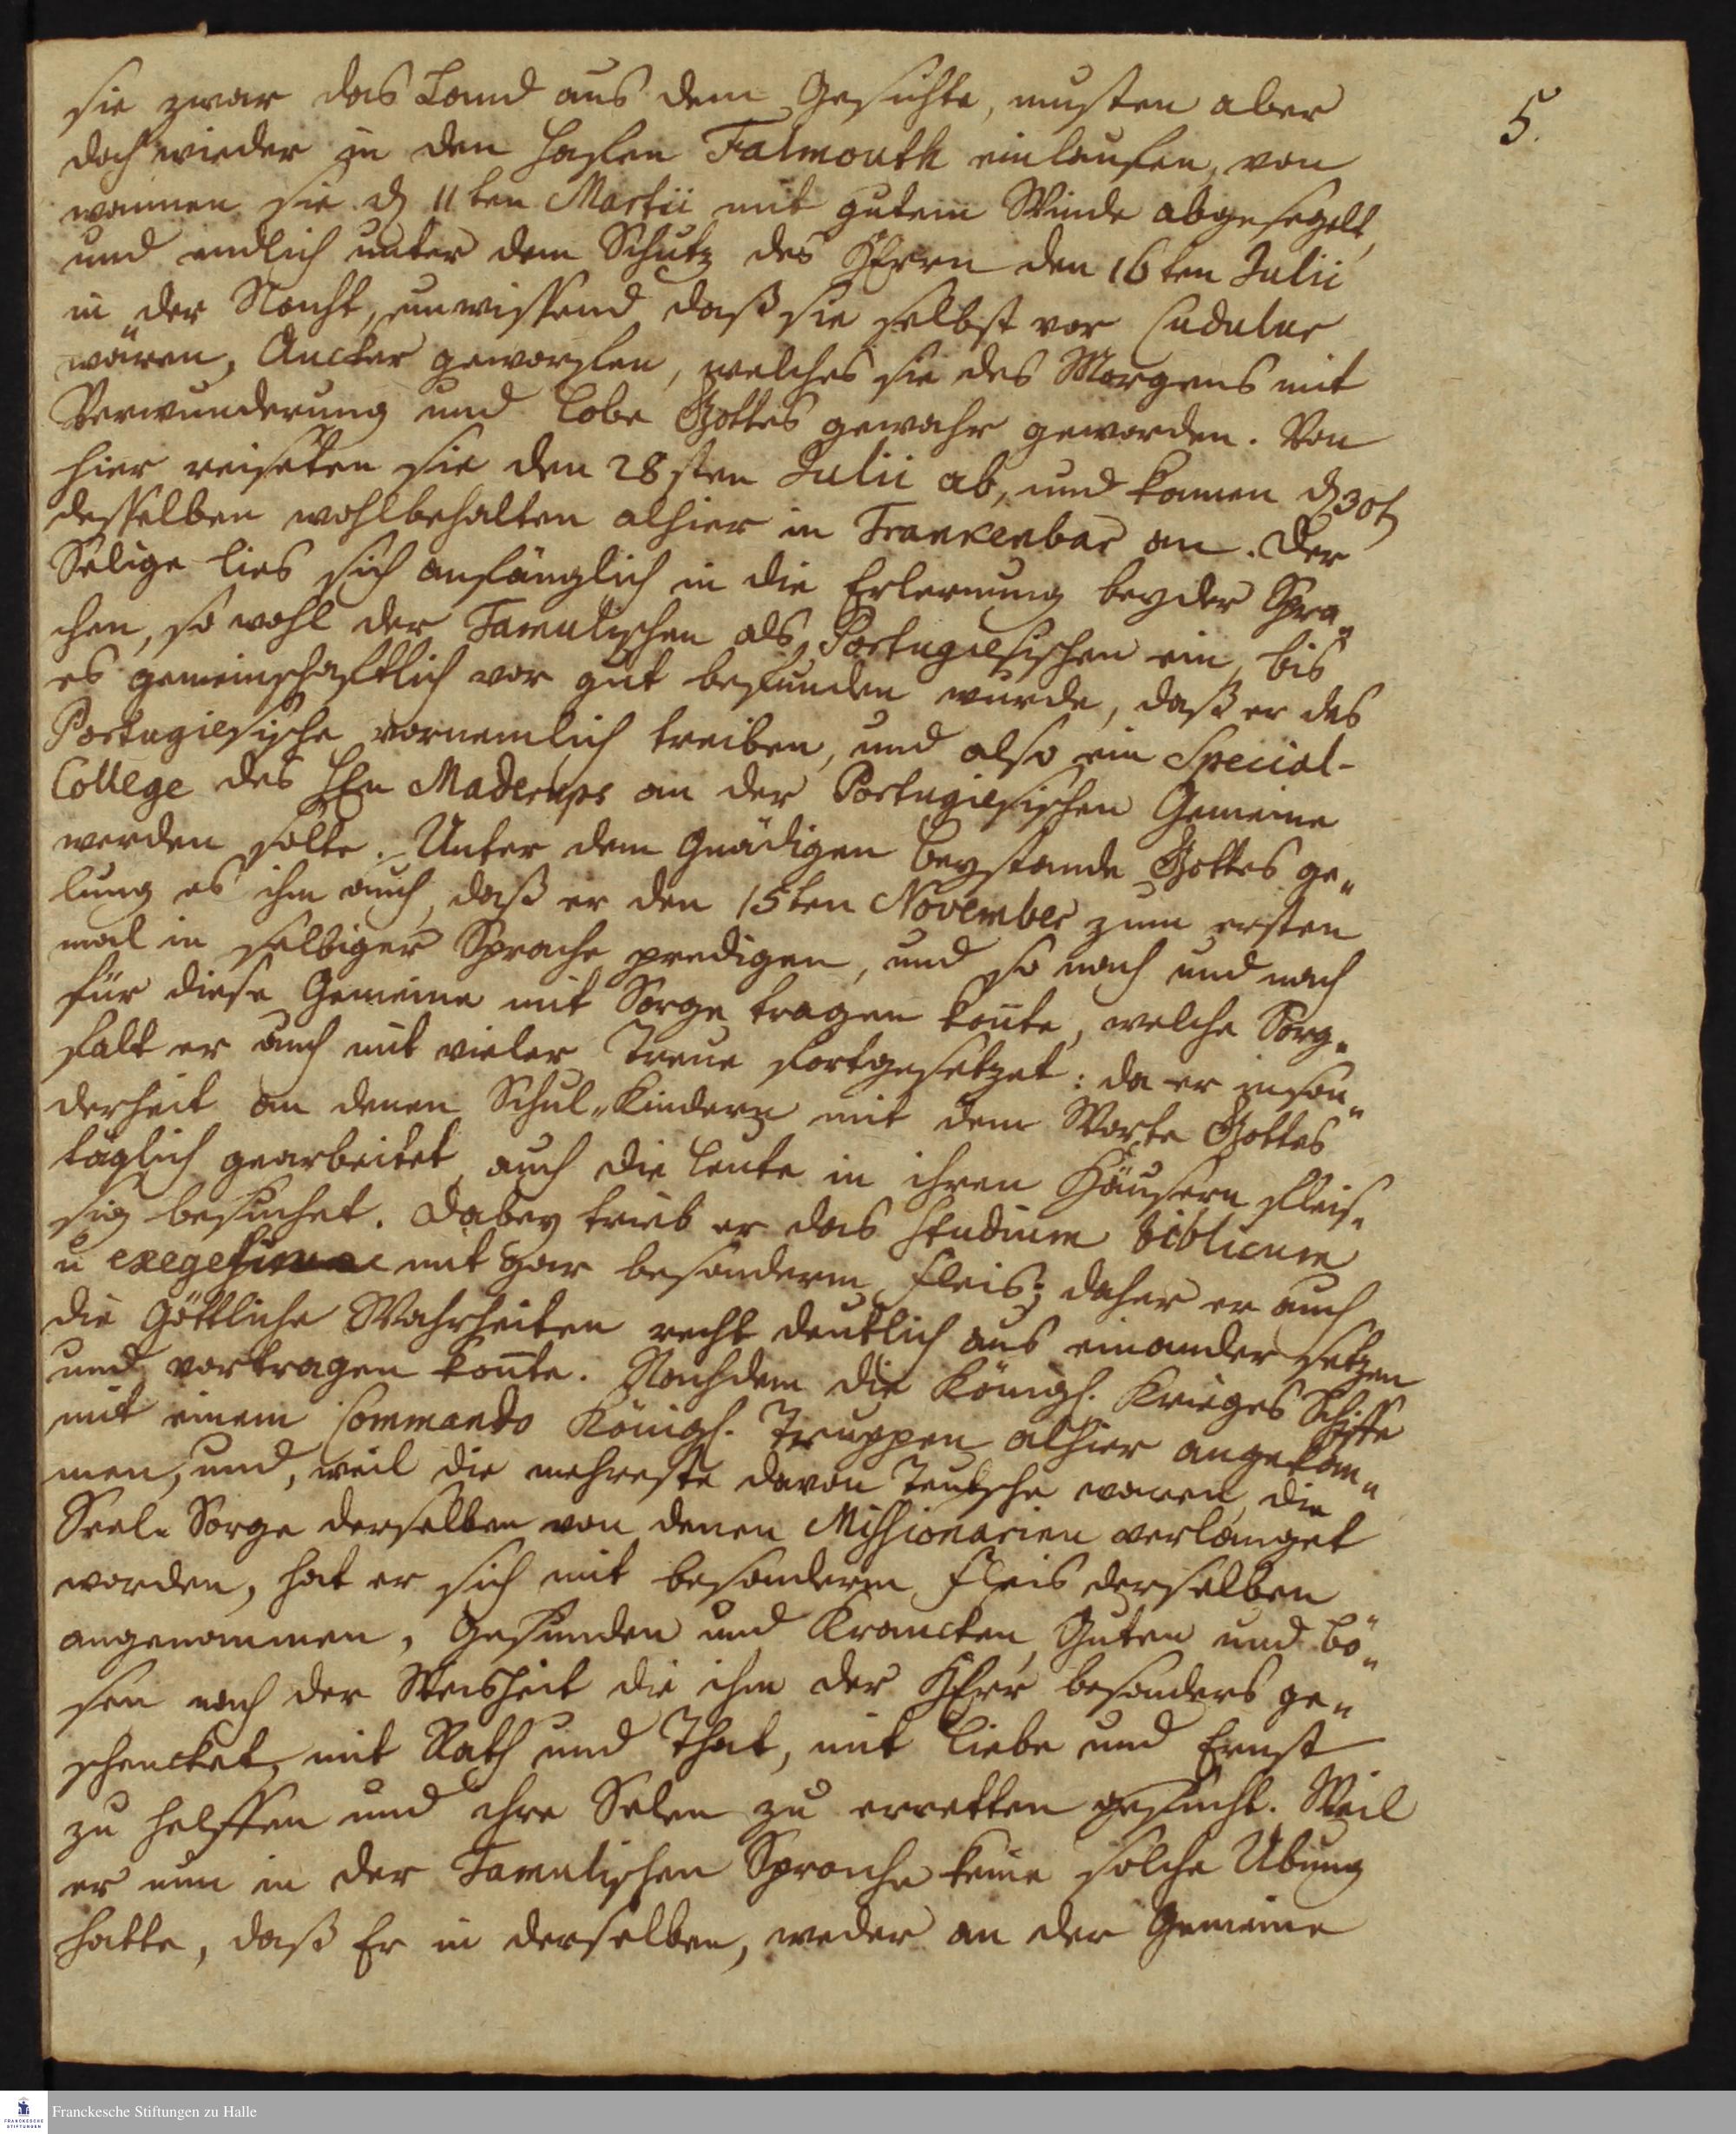 5.
sie zwar das Land aus dem Gesichte, musten aber
doch wieder in den Hafen Falmouth einlaufen, von
wannen sie d 11ten Martii mit gutem Winde abgesegelt,
und endlich unter dem Schutz des HErrn den 16ten Julii
in der Nacht, unwissend daß sie selbst vor Cudulur
wären, Ancker geworfen, welches sie des Morgens mit
Verwunderung und Lobe Gottes gewahr geworden. Von
hier reiseten sie den 28sten Julii ab, und kamen d 30t
desselben wohlbehalten alhier in Trankenbar an. Der
Selige lies sich anfänglich in die Erlernung beyder Spra„
chen, so wohl der Tamulischen als Portugiesischen ein, bis
es gemeinschaftlich vor gut befunden wurde, daß er das
Portugiesische vornemlich treiben, und also ein Special-
College des HEn Maderups an der Portugiesischen Gemeine
werden solte. Unter dem Gnädigen Beystande Gottes ge„
lung es ihm auch, daß er den 15ten November zum ersten
mal in selbiger Sprache predigen, und so nach und nach
für diese Gemeine mit Sorge tragen konte, welche Sorg„
falt er auch mit vieler Treue fortgesetzet: da er inson„
derheit an denen Schul„Kindern mit dem Worte Gottes
täglich gearbeitet, auch die Leute in ihren Häusern fleis„
sig besuchet. Dabey trieb er das Studium biblicum
u mit gar besonderm Fleis; daher er auch
die Göttliche Wahrheiten recht deutlich aus einander setzen
und vortragen konte. Nachdem die Königl. Krieges Schiffe
mit einem Commando Königl. Truppen alhier angekom„
men, und, weil die mehreste davon Teutsche waren, die
Seel„Sorge derselben von denen Missionarien verlanget
worden, hat er sich mit besonderm Fleis derselben
angenommen, Gesunden und Krancken, Guten und Bö„
sen nach der Weisheit die ihm der HErr besonders ge„
schencket, mit Rath und That, mit Liebe und Ernst
zu helffen und ihre Selen zu erretten gesucht. Weil
er nun in der Tamulischen Sprache keine solche Ubung
hatte, daß Er in derselben, weder an der Gemeine
FRANCKESCHE
STIFTUNGEN
Franckesche Stiftungen zu Halle